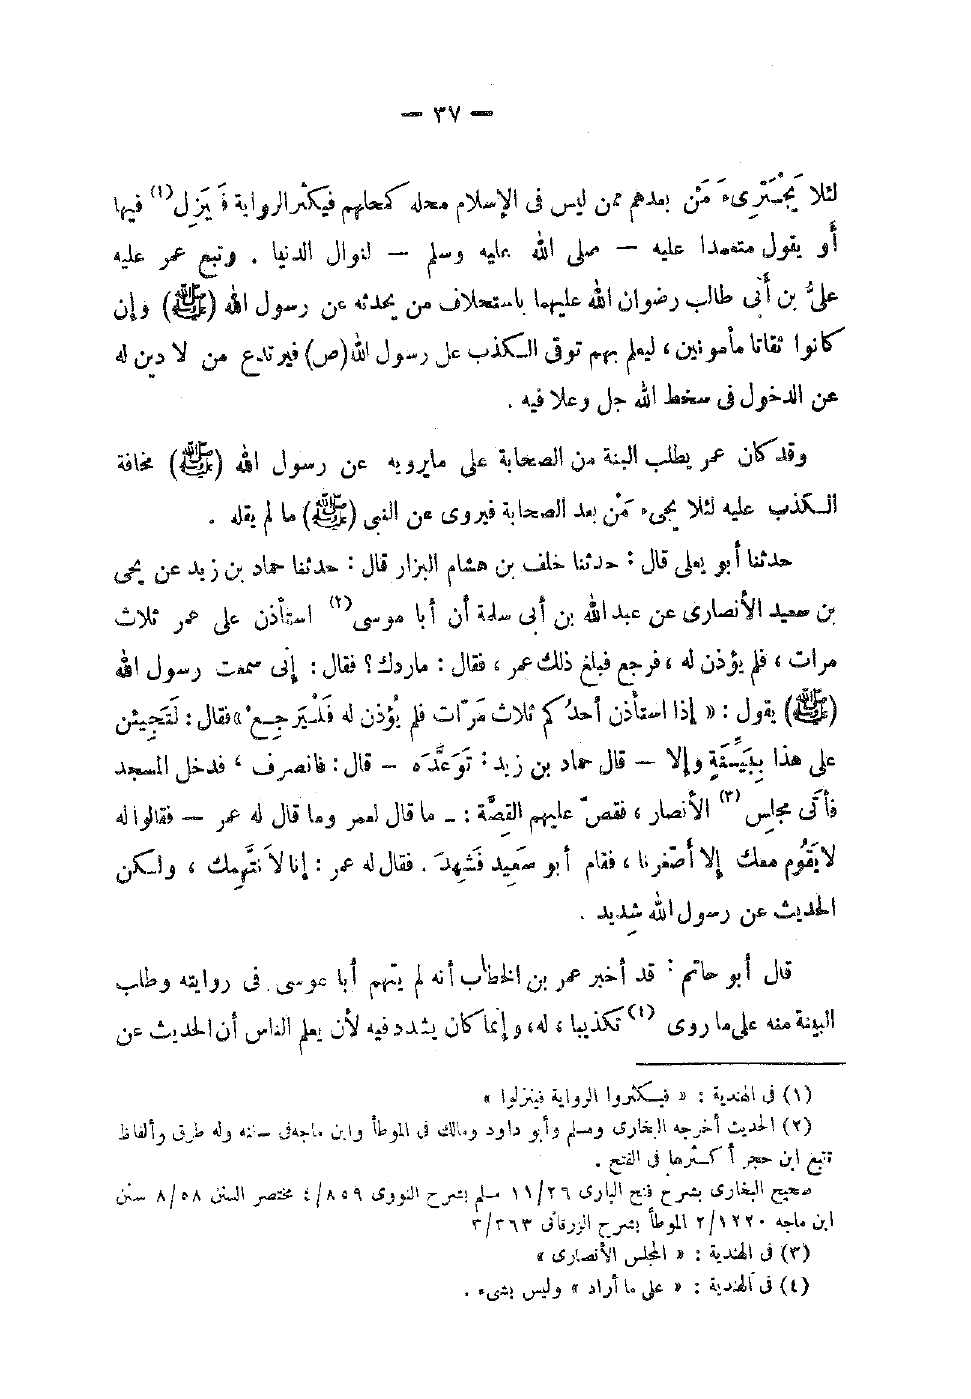 — ٣٧ —
لئلا يَجْتَرِىء مَنْ بعدهم ممن ليس فى الإسلام محله كمحلهم فيكثر الرواية فَيَزِل (١) فيها
أو يقول متعمدا عليه — صلى الله عليه وسلم — لنوال الدنيا . وتبع عمر عليه
علىُّ بن أبى طالب رضوان الله عليهما باستحلاف من يحدثه عن رسول الله (ﷺ) وإن
كانوا ثقاتا مأمونين ، ليعلم بهم توقى الكذب على رسول الله (ص) فيرتدع من لا دين له
عن الدخول فى سخط الله جل وعلا فيه .
وقد كان عمر يطلب البنة من الصحابة على مايرويه عن رسول الله (ﷺ) مخافة
الكذب عليه لئلا يجىء مَنْ بعد الصحابة فيروى عن النبى (ﷺ) ما لم يقله .
حدثنا أبو يعلى قال : حدثنا خلف بن هشام البزار قال : حدثنا حماد بن زيد عن يحى
بن سعيد الأنصارى عن عبد الله بن أبى سلمة أن أبا موسى (٢) استأذن على عمر ثلاث
مرات ، فلم يؤذن له ، فرجع فبلغ ذلك عمر ، فقال : ماردك ؟ فقال : إنى سمعت رسول الله
(ﷺ) يقول : « إذا استأذن أحدُكم ثلاث مَرّات فلم يُؤذن له فَلْيَرجِع » فقال : لَتَجِيئن
على هذا بِبَيِّنَةٍ وإلا — قال حماد بن زيد : تَوَعَّدَه — قال : فانصرف ، فدخل المسجد
فأتى مجلِس (٣) الأنصار ، فقصّ عليهم القِصَّة : ـ ما قال لعمر وما قال له عمر — فقالوا له
لا يَقُوم معك إلا أصْغرنا ، فقام أبو سَعِيد فَشَهِدَ . فقال له عمر : إنا لاَ نَتَّهِمك ، ولكن
الحديث عن رسول الله شِديد .
قال أبو حاتم : قد أخبر عمر بن الخطاب أنه لم يتهم أبا موسى فى روايته وطلب
البينة منه على ما روى (٤) تكذيبا ، له، وإنما كان يشدد فيه لأن يعلم الناس أن الحديث عن
(١) فى الهندية : « فيكثروا الرواية فينزلوا »
(٢) الحديث أخرجه البخارى ومسلم وأبو داود ومالك فى الموطأ وابن ماجه فى سننه وله طرق وألفاظ
تتبع ابن حجر أكثرها فى الفتح .
صحيح البخارى بشرح فتح البارى ١١/٢٦ مسلم بشرح النووى ٤/٨٥٩ مختصر السنن ٨/٥٨ سنن
ابن ماجه ٢/١٢٢٠ الموطأ بشرح الزرقانى ٣/٣٦٣
(٣) فى الهندية : « المجلس الأنصارى »
(٤) فى الهندية : « على ما أراد » وليس بشىء .